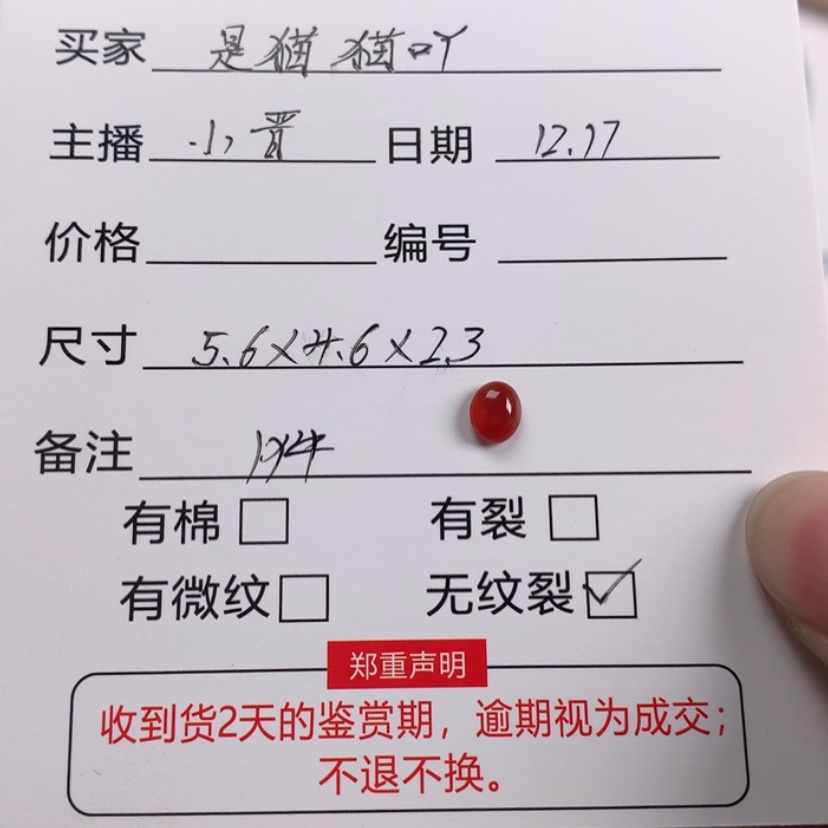 买家 是猫猫吖
主播 小晋 日期 12.17
价格 编号
尺寸 5.6×4.6×2.3
备注
有棉 有裂
有微纹 无纹裂
郑重声明
收到货2天的鉴赏期，逾期视为成交；
不退不换。